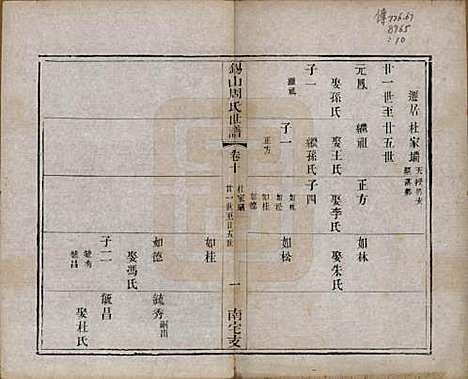 777.67
8765
:10
遷居杜家壩
廿一世至廿五世
元鳳 繼祖 正方 如林
娶孫氏 娶王氏 娶李氏 娶朱氏
子一 繼孫氏 子四
繼祖 子一 如林 如松
正方 如松
如桂
如德
錫山周氏世譜 卷十 杜家壩 廿一世至廿五世 一 南宅支
如桂
如德 毓秀 嗣出
娶馮氏 毓昌
子二 娶杜氏
毓秀
毓昌